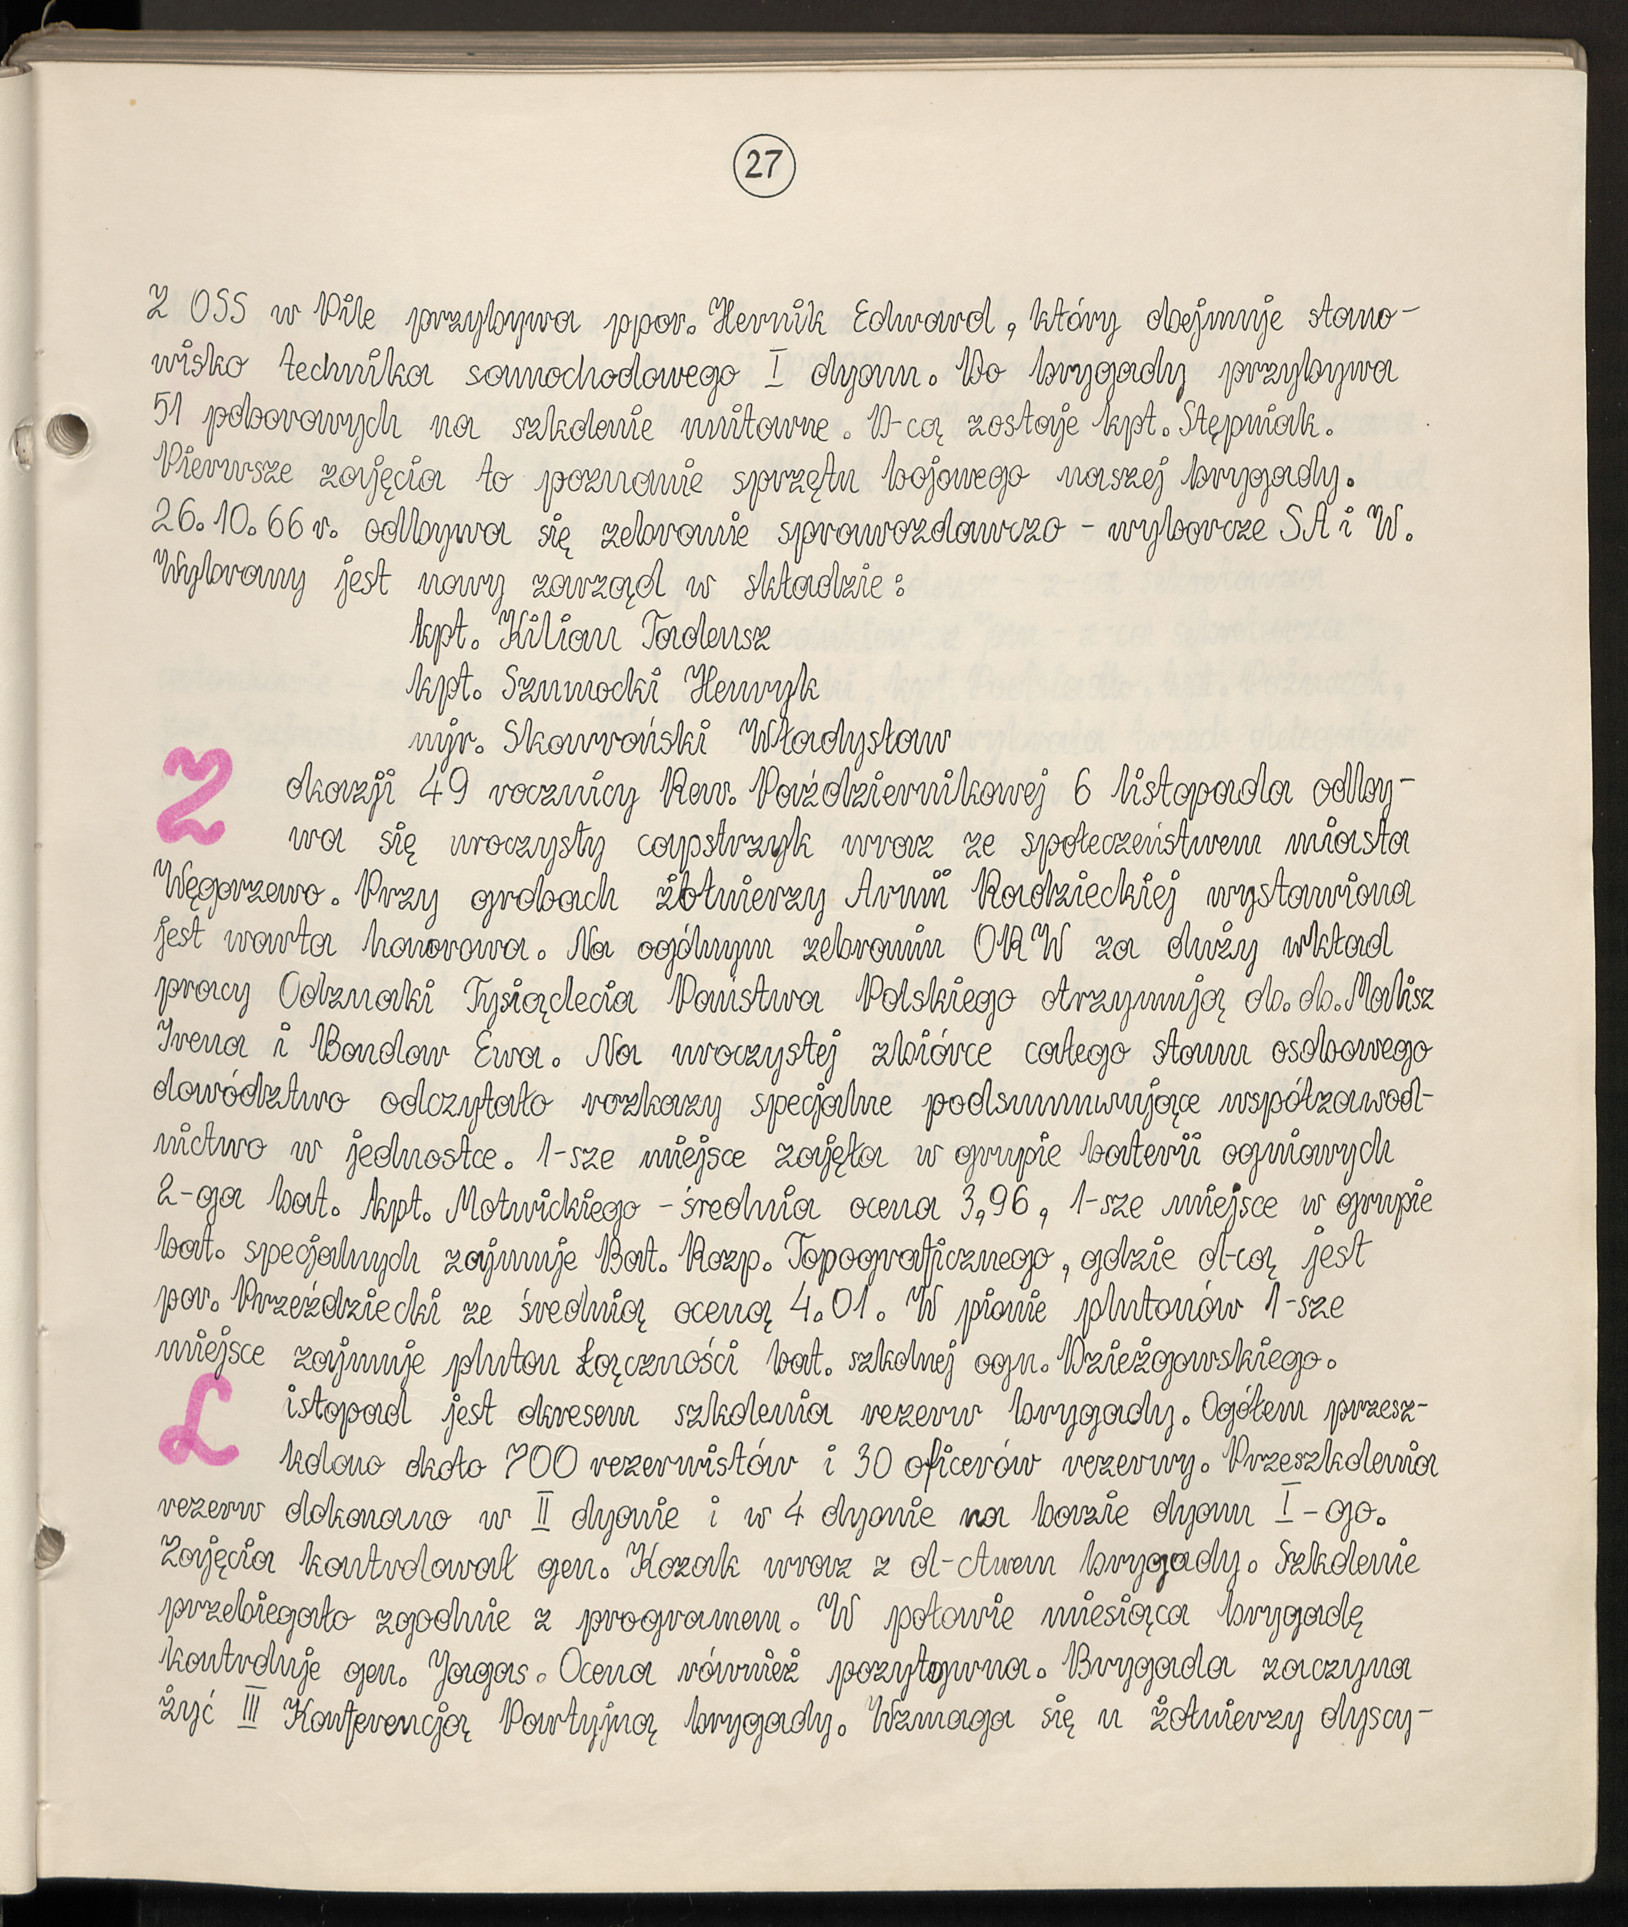 27
Z OSS w Pile przybywa ppor. Hernik Edward, który obejmuje stano-
wisko technika samochodowego I dyonu. Do brygady przybywa
51 poborowych na szkolenie unitarne. D-cą zostaje kpt. Stępniak.
Pierwsze zajęcia to poznanie sprzętu bojowego naszej brygady.
26.10.66 r. odbywa się zebranie sprawozdawczo - wyborcze SA i W.
Wybrany jest nowy zarząd w składzie:
kpt. Kilian Tadeusz
kpt. Szumocki Henryk
mjr. Skawroński Władysław
Z okazji 49 rocznicy Rew. Październikowej 6 listopada odby-
wa się uroczysty capstrzyk wraz ze społeczeństwem miasta
Węgorzewo. Przy grobach żołnierzy Armii Radzieckiej wystawiona
jest warta honorowa. Na ogólnym zebraniu ORW za duży wkład
pracy Odznaki Tysiąclecia Państwa Polskiego otrzymują ob. ob. Malisz
Irena i Bondaw Ewa. Na uroczystej zbiórce całego stanu osobowego
dowództwo odczytało rozkazy specjalne podsumuwujące współzawod-
nictwo w jednostce. 1-sze miejsce zajęła w grupie baterii ogniowych
2-ga bat. kpt. Motwickiego - średnia ocena 3,96, 1-sze miejsce w grupie
bat. specjalnych zajmuje Bat. Rozp. Topograficznego, gdzie d-cą jest
por. Przeździecki ze średnią oceną 4.01. W pionie plutonów 1-sze
miejsce zajmuje pluton Łączności bat. szkolnej ogn. Dzieżgowskiego.
Listopad jest okresem szkolenia rezerw brygady. Ogółem przesz-
kolono około 700 rezerwistów i 30 oficerów rezerwy. Przeszkolenia
rezerw dokonano w II dyonie i w 4 dyonie na bazie dyonu I-go.
Zajęcia kontrolował gen. Kozak wraz z d-ctwem brygady. Szkolenie
przebiegało zgodnie z programem. W połowie miesiąca brygadę
kontroluje gen. Jagas. Ocena również pozytywna. Brygada zaczyna
żyć III Konferencją Partyjną brygady. Wzmaga się u żołnierzy dyscy-